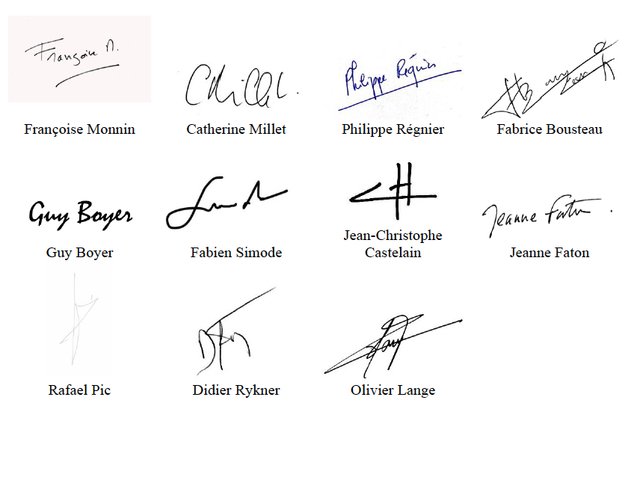 Françoise M.
Françoise Monnin
Catherine Millet
Philippe Régnier
Philippe Régnier
Fabrice Bousteau
Guy Boyer
Guy Boyer
Fabien Simode
Jean-Christophe
Castelain
Jeanne Faton
Jeanne Faton
Rafael Pic
Didier Rykner
Olivier Lange